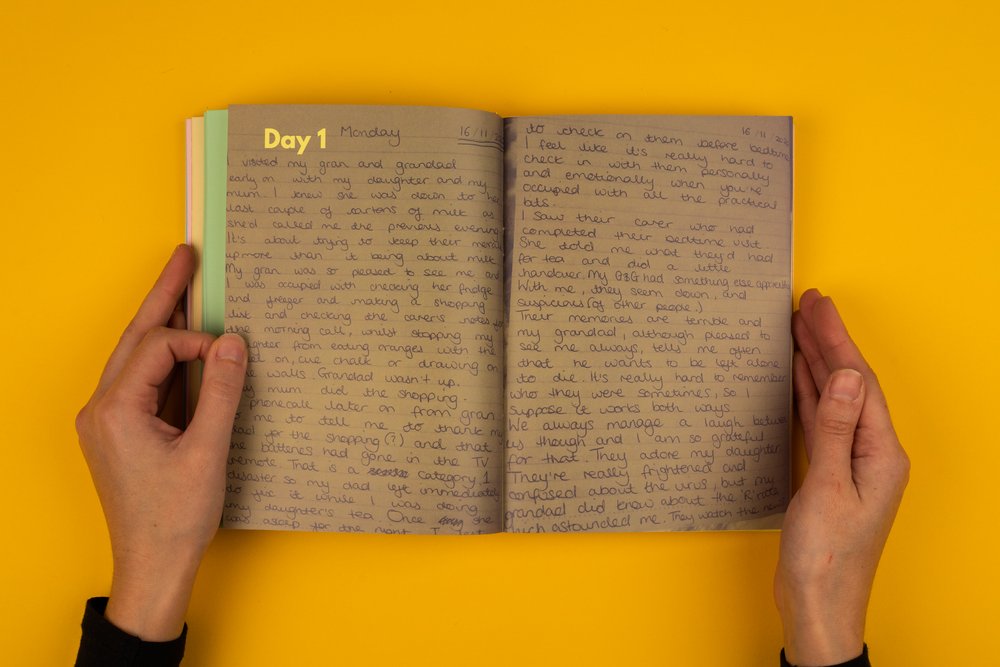 Day 1 Monday 16/11/
I visited my gran and grandad
early on with my daughter and my
mum. I knew she was down to her
last couple of cartons of milk as
she'd called me the previous evening.
It's about trying to keep their morale
up more than it being about milk.
My gran was so pleased to see me and
I was occupied with checking her fridge
and freezer and making a shopping
list and checking the carer's notes for
the morning call, whilst stopping my
ghter from eating oranges with the
on, we chalk or drawing on
walls. Grandad wasn't up.
mum did the shopping.
phonecall later on from gran
me to tell me to thank my
for the shopping (?) and that
batteries had gone in the TV
remote. That is a category 1
disaster so my dad left immediately
to fix it while I was doing
my daughter's tea. Once she
was asleep for the night, I
16/11/
to check on them before bedtime
I feel like it's really hard to
check in with them personally
and emotionally when you're
occupied with all the practical
bits.
I saw their carer who had
completed their bedtime visit.
She told me what they'd had
for tea and did a little
handover. My G&G had something else
With me, they seem down, and
suspicious (of other people.)
Their memories are terrible and
my grandad, although pleased to
see me always, tells me often
that he wants to be left alone
to die. It's really hard to remember
who they were sometimes, so I
suppose it works both ways
We always manage a laugh between
us though and I am so grateful
for that. They adore my daughter.
They're really frightened and
confused about the virus, but my
grandad did know about the 'R' rate
which astounded me. They watch the